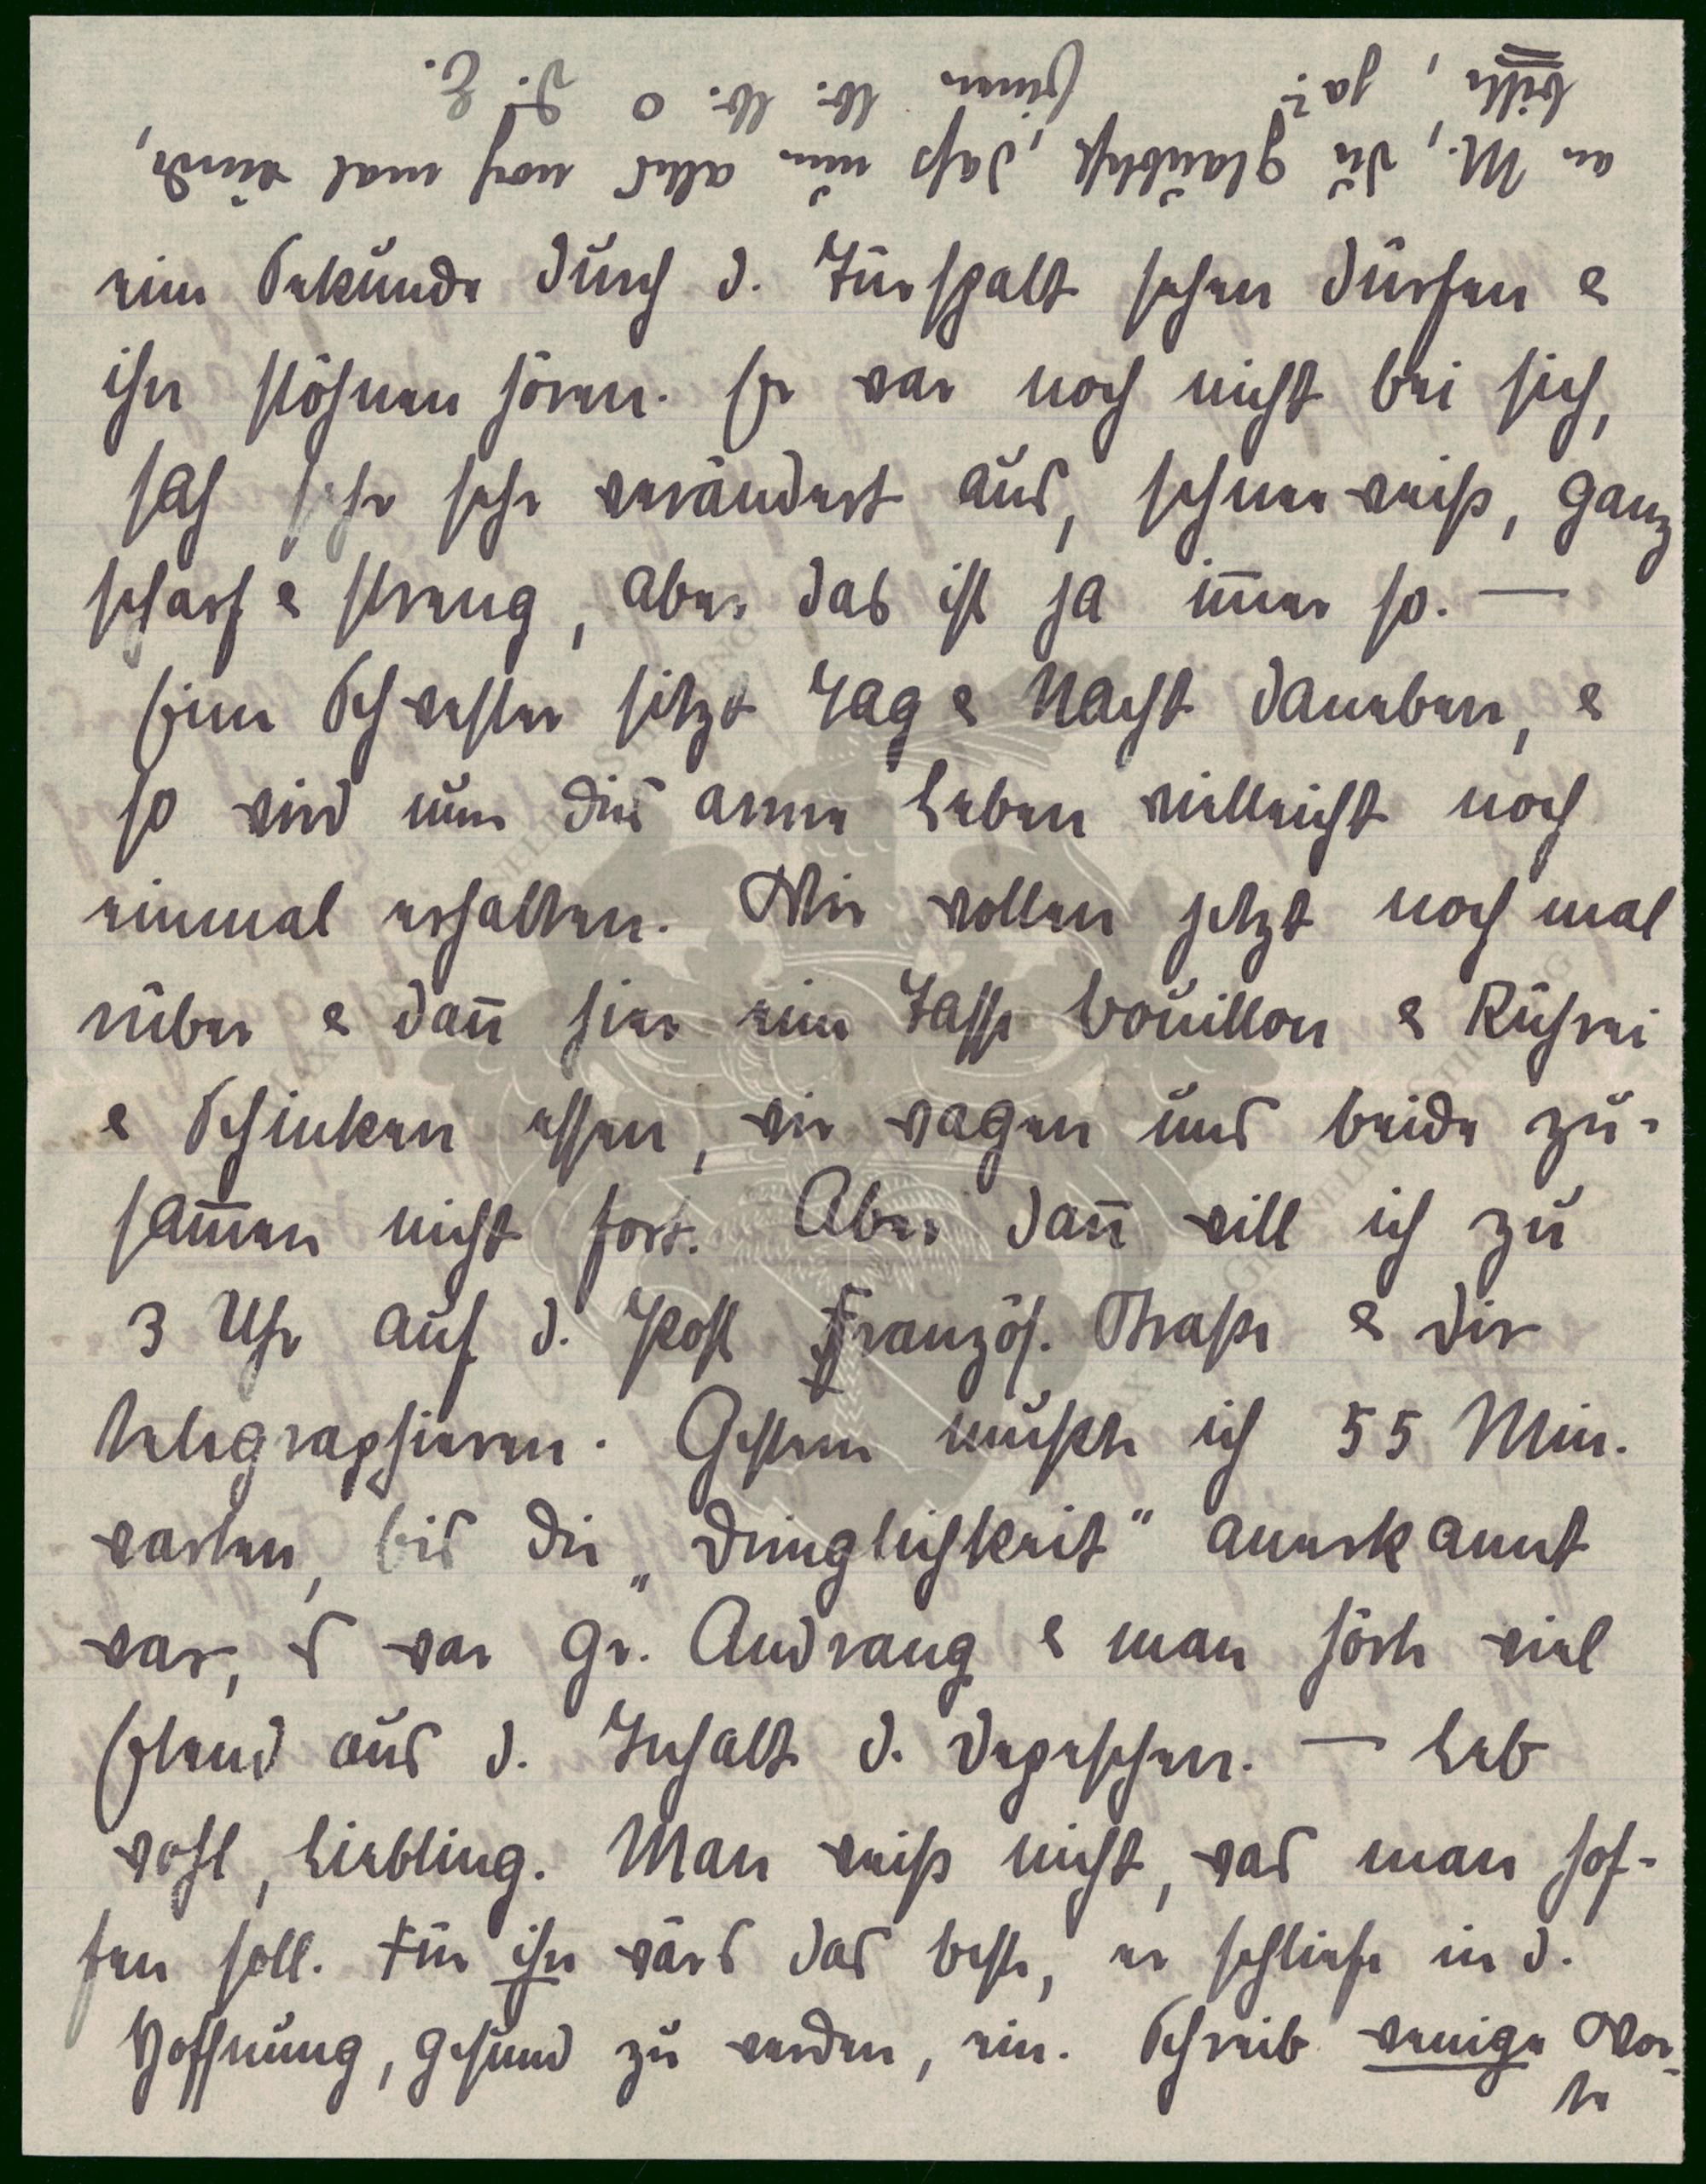 eine Sekunde durch d. Türspalt sehen dürfen &
ihn stöhnen hören. Er war noch nicht bei sich,
sah sehr sehr verändert aus, schneeweiß, ganz
scharf & streng, aber das ist ja im̅er so. —
Eine Schwester sitzt Tag & Nacht daneben, &
so wird nun dies arme Leben vielleicht noch
einmal erhalten. Wir wollen jetzt noch mal
rüber & dan̅ hier eine Tasse Bouillon & Rührei
& Schinken essen, wir wagen uns beide zu-
sam̅en nicht fort. Aber dan̅ will ich zu
3 Uhr auf d. Post Französ. Straße & dir
telegraphieren. Gestern mußte ich 55 Min.
warten, bis die „Dringlichkeit" anerkannt
war, es war gr. Andrang & man hörte viel
Elend aus d. Inhalt d. Depeschen. — Leb
wohl, Liebling. Man weiß nicht, was man hof-
fen soll. Für ihn wärs das beste, er schliefe in d.
Hoffnung, gesund zu werden, ein. Schreib wenige Wor-
te
an M., du glaubtest, daß nun alles noch mal würde,
bitte, ja?